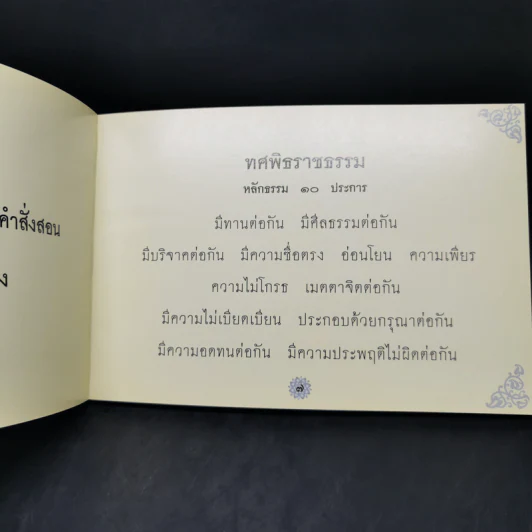 คำสั่งสอน
ทศพิธราชธรรม
หลักธรรม ๑๐ ประการ
มีทานต่อกัน มีศีลธรรมต่อกัน
มีบริจาคต่อกัน มีความซื่อตรง อ่อนโยน ความเพียร
ความไม่โกรธ เมตตาจิตต่อกัน
มีความไม่เบียดเบียน ประกอบด้วยกรุณาต่อกัน
มีความอดทนต่อกัน มีความประพฤติไม่ผิดต่อกัน
๗